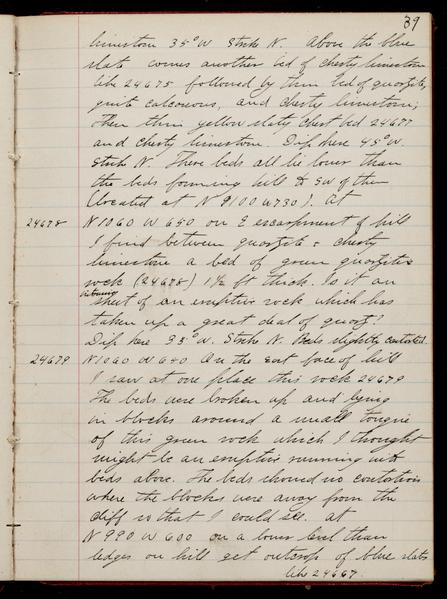 39
limestone 35° W Strike N. Above the blue
slate comes another bed of cherty limestone
like 24675 followed by thin bed of quartzite,
quite calcareous, and cherty limestone;
Then thin yellow slaty chert bed 24677
and cherty limestone. Dip here 45° W.
Strike N. These beds all lie lower than
the beds forming hill to SW of them
(located at N 9100 W 730). At
24678 N 1060 W 650 on E escarpment of hill
I find between quartzite & cherty
limestone a bed of green quartzite
rock (24678) 1 1/2 ft thick. Is it an
intrusive
sheet of an eruptive rock which has
taken up a great deal of quartz?
Dip here 35° W. Strike N. Beds slightly contorted.
24679 N 1060 W 640 On the east face of hill
I saw at one place this rock 24679
The beds were broken up and lying
in blocks around a small tongue
of this green rock which I thought
might be an eruptive running into
beds above. The beds showed no contortions
where the blocks were away from the
cliff so that I could see. At
N 990 W 600 on a lower level than
ledges on hill get outcrop of blue slate
like 24667